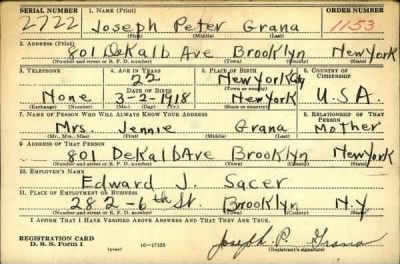 SERIAL NUMBER 1. NAME (Print) ORDER NUMBER
2722 Joseph Peter Grana 1153
(First) (Middle) (Last)
2. ADDRESS (Print)
801 DeKalb Ave Brooklyn New York
(Number and street or R. F. D. number) (Town) (County) (State)
3. TELEPHONE 4. AGE IN YEARS 5. PLACE OF BIRTH 6. COUNTRY OF CITIZENSHIP
22 New York City
DATE OF BIRTH (Town or county)
None 3-2-1918 New York U.S.A.
(Exchange) (Number) (Mo.) (Day) (Yr.) (State or country)
7. NAME OF PERSON WHO WILL ALWAYS KNOW YOUR ADDRESS 8. RELATIONSHIP OF THAT PERSON
Mrs. Jennie Grana Mother
(Mr., Mrs., Miss) (First) (Middle) (Last)
9. ADDRESS OF THAT PERSON
801 DeKalb Ave Brooklyn New York
(Number and street or R. F. D. number) (Town) (County) (State)
10. EMPLOYER'S NAME
Edward J. Sacer
11. PLACE OF EMPLOYMENT OR BUSINESS
282-6th St. Brooklyn N.Y
(Number and street or R. F. D. number) (Town) (County) (State)
I AFFIRM THAT I HAVE VERIFIED ABOVE ANSWERS AND THAT THEY ARE TRUE.
REGISTRATION CARD
D. S. S. Form 1 (over) 16-17105 Joseph P. Grana
(Registrant's signature)